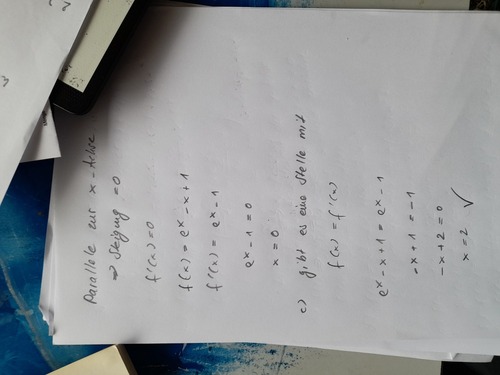 Parallele zur x-Achse
⇒ Steigung = 0
f'(x) = 0
f(x) = e^x - x + 1
f'(x) = e^x - 1
e^x - 1 = 0
x = 0
c) gibt es eine Stelle mit
f(x) = f'(x)
e^x - x + 1 = e^x - 1
-x + 1 = -1
-x + 2 = 0
x = 2 ✓